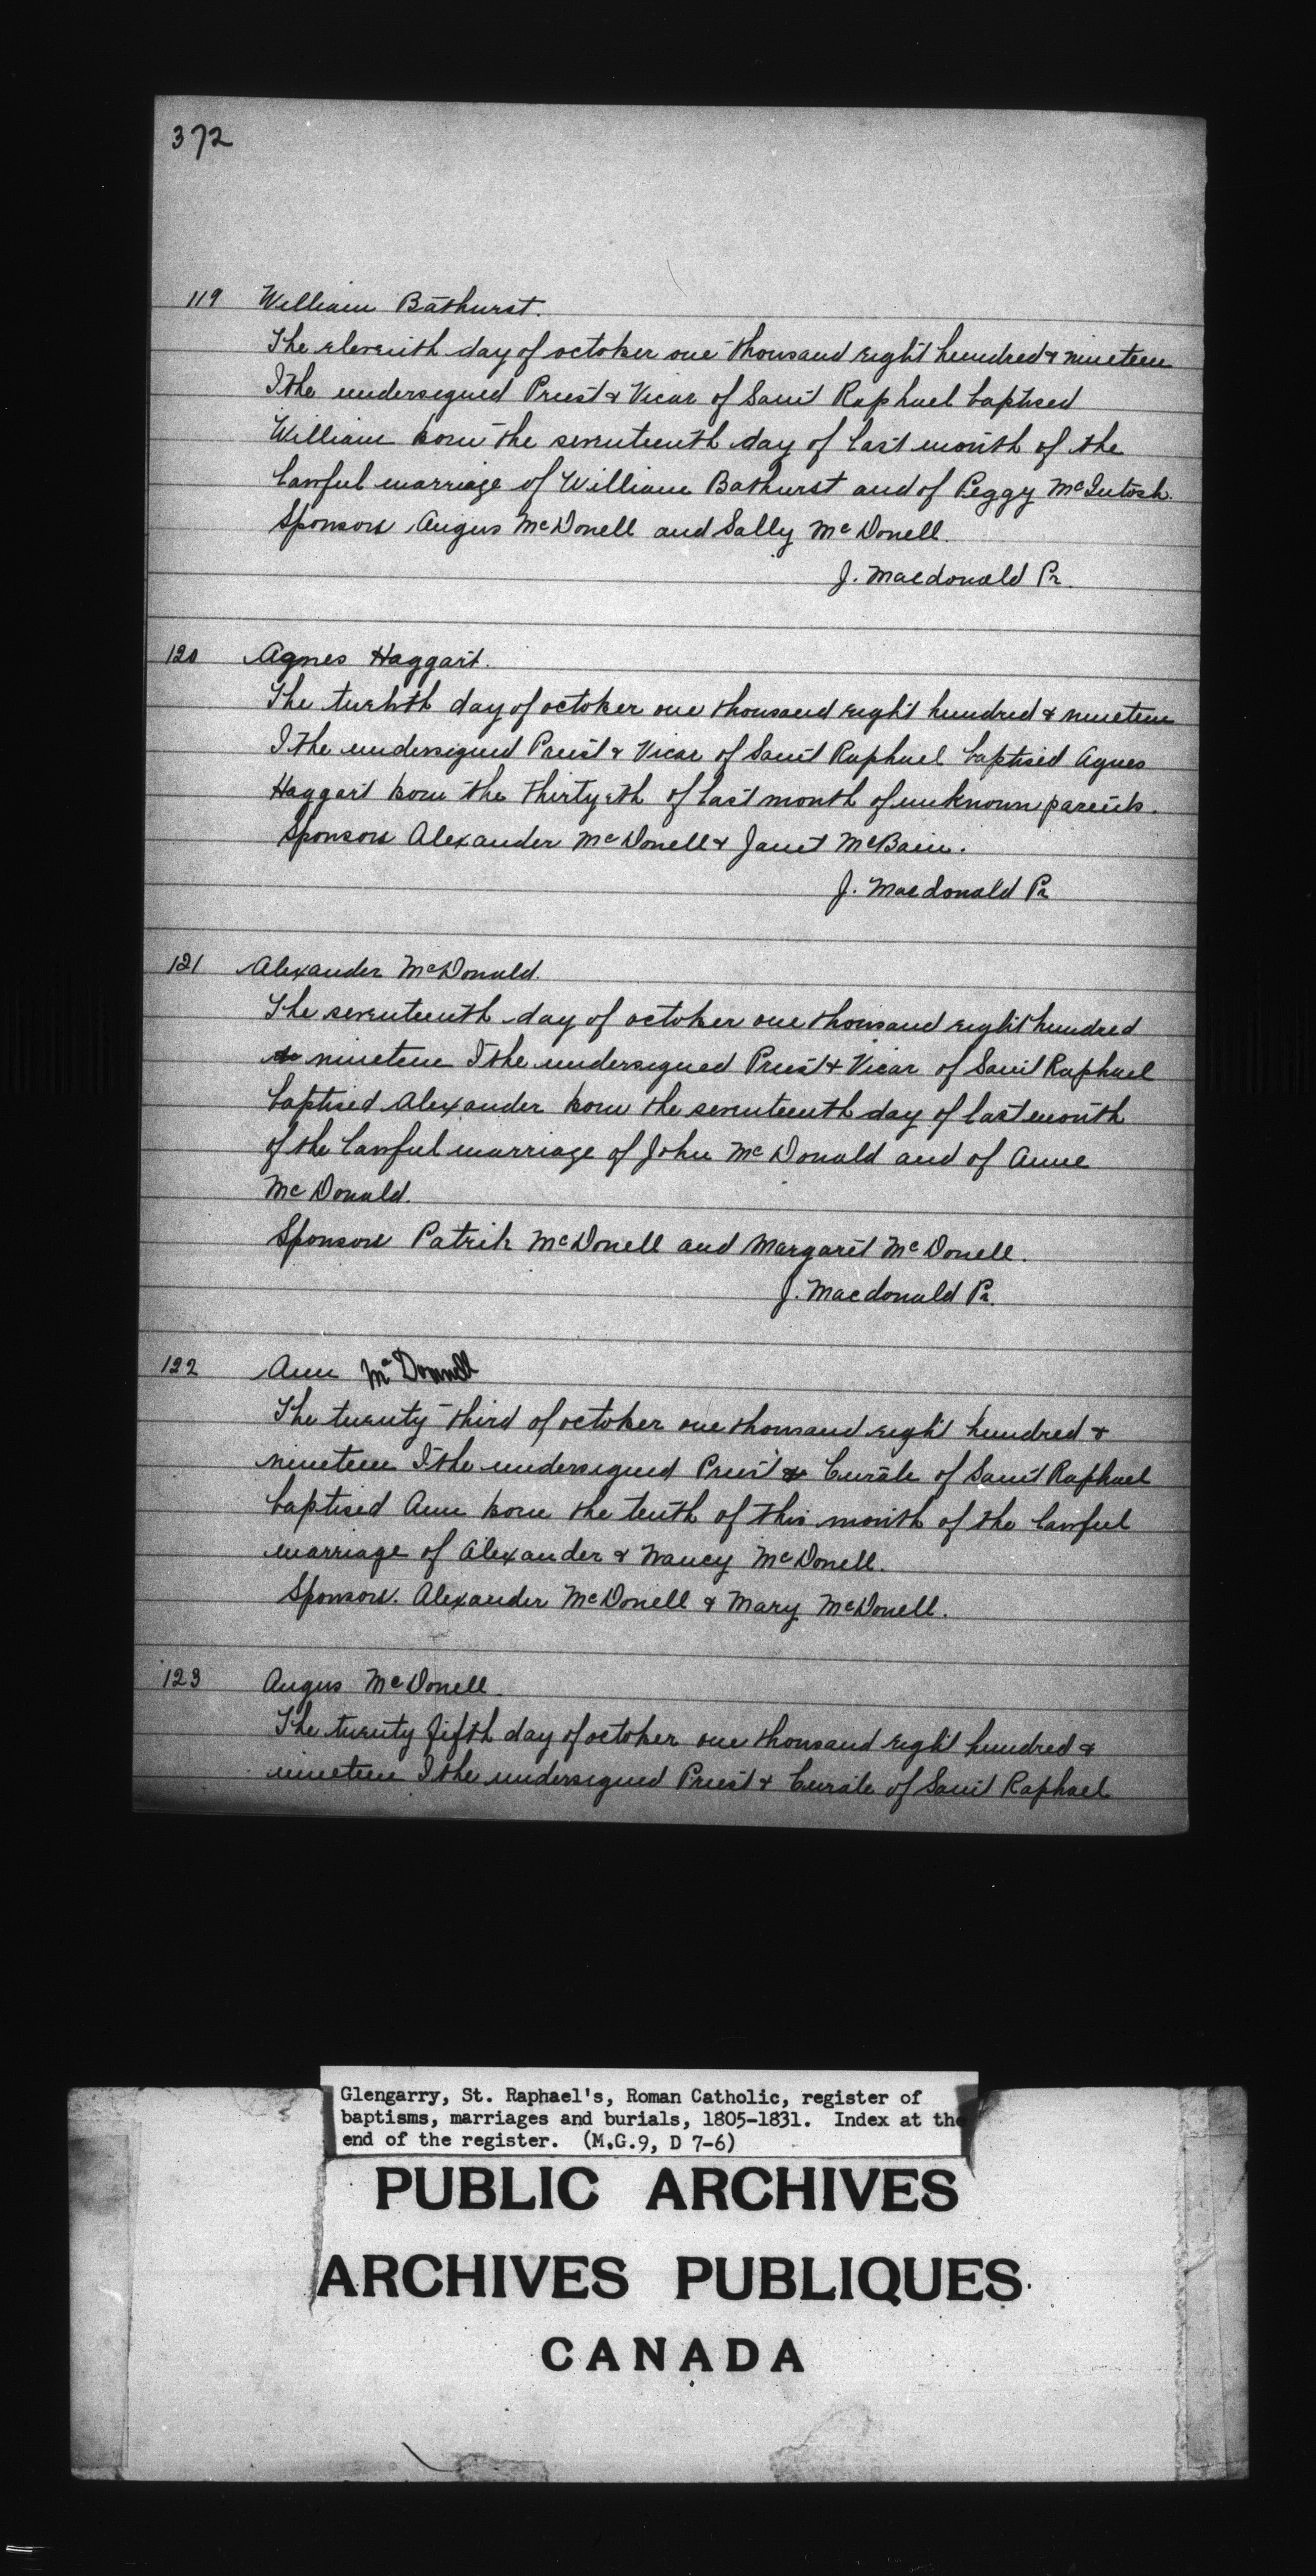 372
119 William Bathurst.
The eleventh day of october one thousand eight hundred & nineteen
I the undersigned Priest & Vicar of Saint Raphael baptised
William born the seventeenth day of last month of the
lawful marriage of William Bathurst and of Peggy McIntosh.
Sponsors Angus McDonell and Sally McDonell.
J. Macdonald Pr.
120 Agnes Haggart.
The twelvth day of october one thousand eight hundred & nineteen
I the undersigned Priest & Vicar of Saint Raphael baptised Agnes
Haggart born the thirtyeth of last month of unknown parents.
Sponsors Alexander McDonell & Janet McBain.
J. Macdonald Pr
121 Alexander McDonald.
The seventeenth day of october one thousand eight hundred
nineteen I the undersigned Priest & Vicar of Saint Raphael
baptised Alexander born the seventeenth day of last month
of the lawful marriage of John McDonald and of Anne
McDonald.
Sponsors Patrik McDonell and Margaret McDonell.
J. Macdonald Pr.
122 Ann McDonnell
The twenty third of october one thousand eight hundred &
nineteen I the undersigned Priest & Curate of Saint Raphael
baptised Ann born the tenth of this month of the lawful
marriage of Alexander & Nancy McDonell.
Sponsors. Alexander McDonell & Mary McDonell.
123 Angus McDonell.
The twenty fifth day of october one thousand eight hundred &
nineteen I the undersigned Priest & Curate of Saint Raphael
Glengarry, St. Raphael's, Roman Catholic, register of
baptisms, marriages and burials, 1805-1831. Index at the
end of the register. (M.G.9, D 7-6)
PUBLIC ARCHIVES
ARCHIVES PUBLIQUES
CANADA